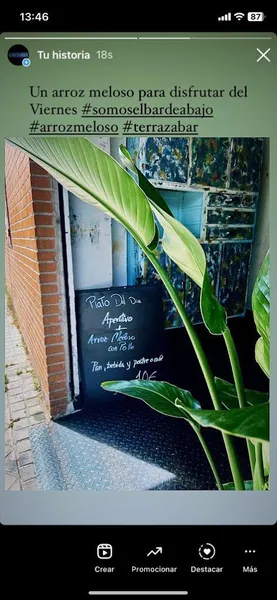 13:46
87
Tu historia 18s
Un arroz meloso para disfrutar del
Viernes #somoselbardeabajo
#arrozmeloso #terrazabar
Plato Del Dia
Aperitivo
+
Arroz Meloso
con Pollo
Pan, bebida y postre o café
10€
Crear
Promocionar
Destacar
Más